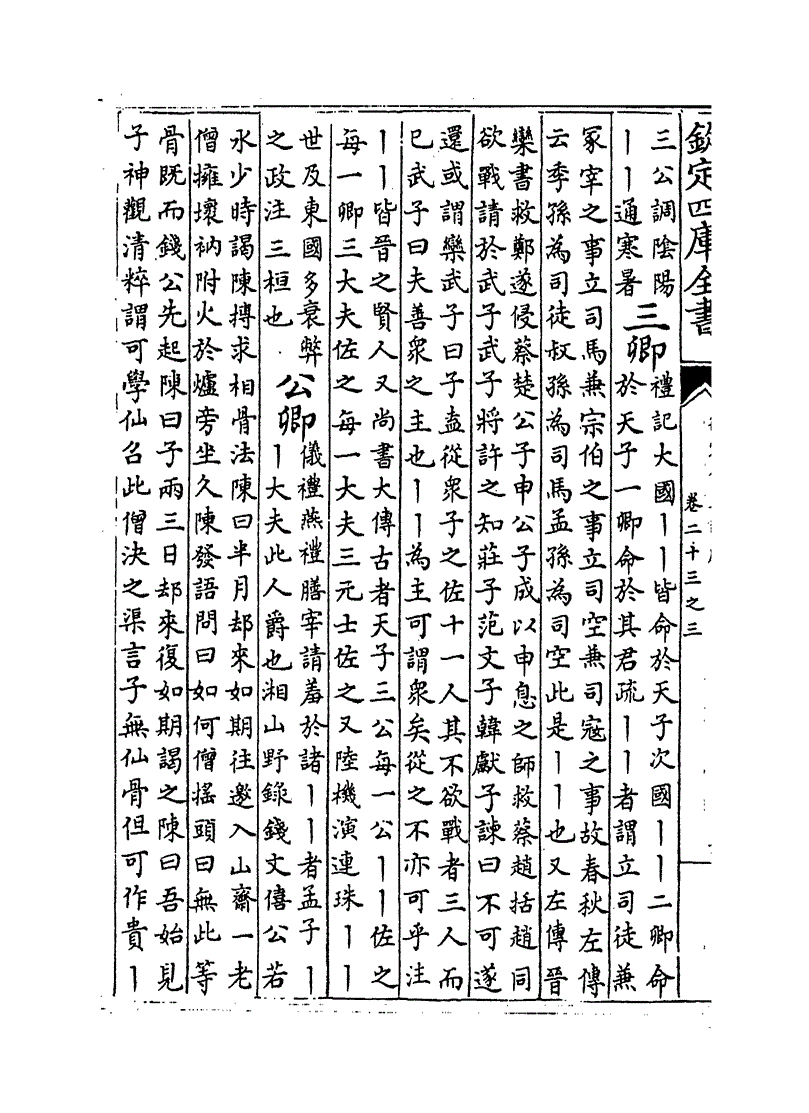 欽定四庫全書
卷二十三之三
三公調陰陽
丨丨通寒暑
三卿
禮記大國丨丨皆命於天子次國丨丨二卿命
於天子一卿命於其君疏丨丨者謂立司徒兼
冢宰之事立司馬兼宗伯之事立司空兼司寇之事故春秋左傳
云季孫為司徒叔孫為司馬孟孫為司空此是丨丨也又左傳晉
欒書救鄭遂侵蔡楚公子申公子成以申息之師救蔡趙括趙同
欲戰請於武子武子將許之知莊子范文子韓獻子諫曰不可遂
還或謂欒武子曰子盍從衆子之佐十一人其不欲戰者三人而
已武子曰夫善衆之主也丨丨為主可謂衆矣從之不亦可乎注
丨丨皆晉之賢人又尚書大傳古者天子三公每一公丨丨佐之
每一卿三大夫佐之每一大夫三元士佐之又陸機演連珠丨丨
世及東國多衰弊
之政注三桓也
公卿
儀禮燕禮膳宰請羞於諸丨丨者孟子丨
丨大夫此人爵也湘山野錄錢文僖公若
水少時謁陳摶求相骨法陳曰半月却來如期往邀入山齋一老
僧擁壞衲附火於爐旁坐久陳發語問曰如何僧搖頭曰無此等
骨既而錢公先起陳曰子兩三日却來復如期謁之陳曰吾始見
子神觀清粹謂可學仙召此僧決之渠言子無仙骨但可作貴丨